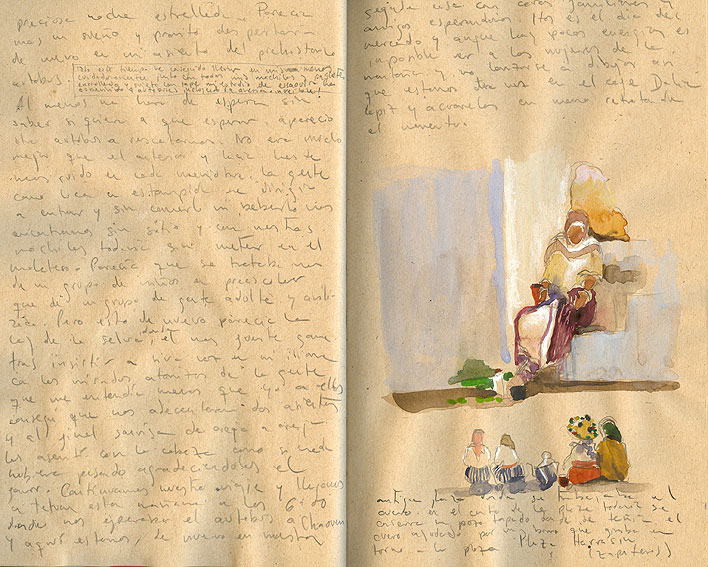 preciosa noche estrellada. Parecía
mas un sueño y pronto despertaría
de nuevo en mi asiento del prehistorico
autobus.
Al menos una hora de espera sin
saber si quiera a que esperar, aparecio
otro autobus a rescatarnos. No era mucho
mejor que el anterior y hacia hasta
mas ruido en cada maniobra. la gente
como loca en estampida se dirigia
a entrar y sin comerlo ni beberlo nos
encontramos sin sitio y con nuestras
mochilas todavia sin meter en el
maletero. Parecia que se trataba mas
de un grupo de niños en preescolar
que de un grupo de gente adulta y
Pero esto de nuevo parecia la
ley de la selva, el mas fuerte gana
tras insistir a viva voz en mi idioma
las miradas atonitas de la gente
que me entendia menos que yo a ellos
consegui que nos adecentaran dos asientos
y al final sonrisa de oreja a oreja
les asenti con la cabeza como si nada
hubiera pasado agradeciendoles el
favor. Continuamos nuestro viaje y llegamos
a tetuan esta mañana a las 6:00
donde nos esperaba el autobus a Chaouen
y aqui estamos, de nuevo en nuestra
segunda casa con caras familiares y
amigos esperandonos. Hoy es el dia del
mercado y aunque hay pocas energias es
imposible ver a las mujeres de la
montaña y no lanzarse a dibujar asi
que estamos otra vez en el cafe
lapiz y acuarelas en mano retratando
el momento.
antigua plaza donde se trabajaba el
cuero. en el centro de la plaza todavia se
conserva un pozo tapado donde se teñia el
cuero ayudado por un burro que giraba en
torno a la plaza. Plaza Harrasin
(Zapateros)